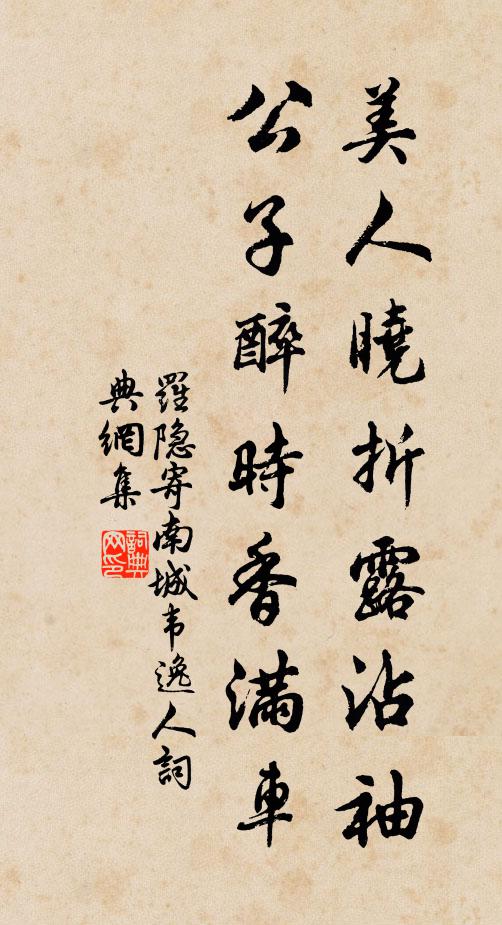 美人曉折露沾袖
公子醉時香滿車
羅隐寄南城韦逸人詞
典網集
詞典
网印